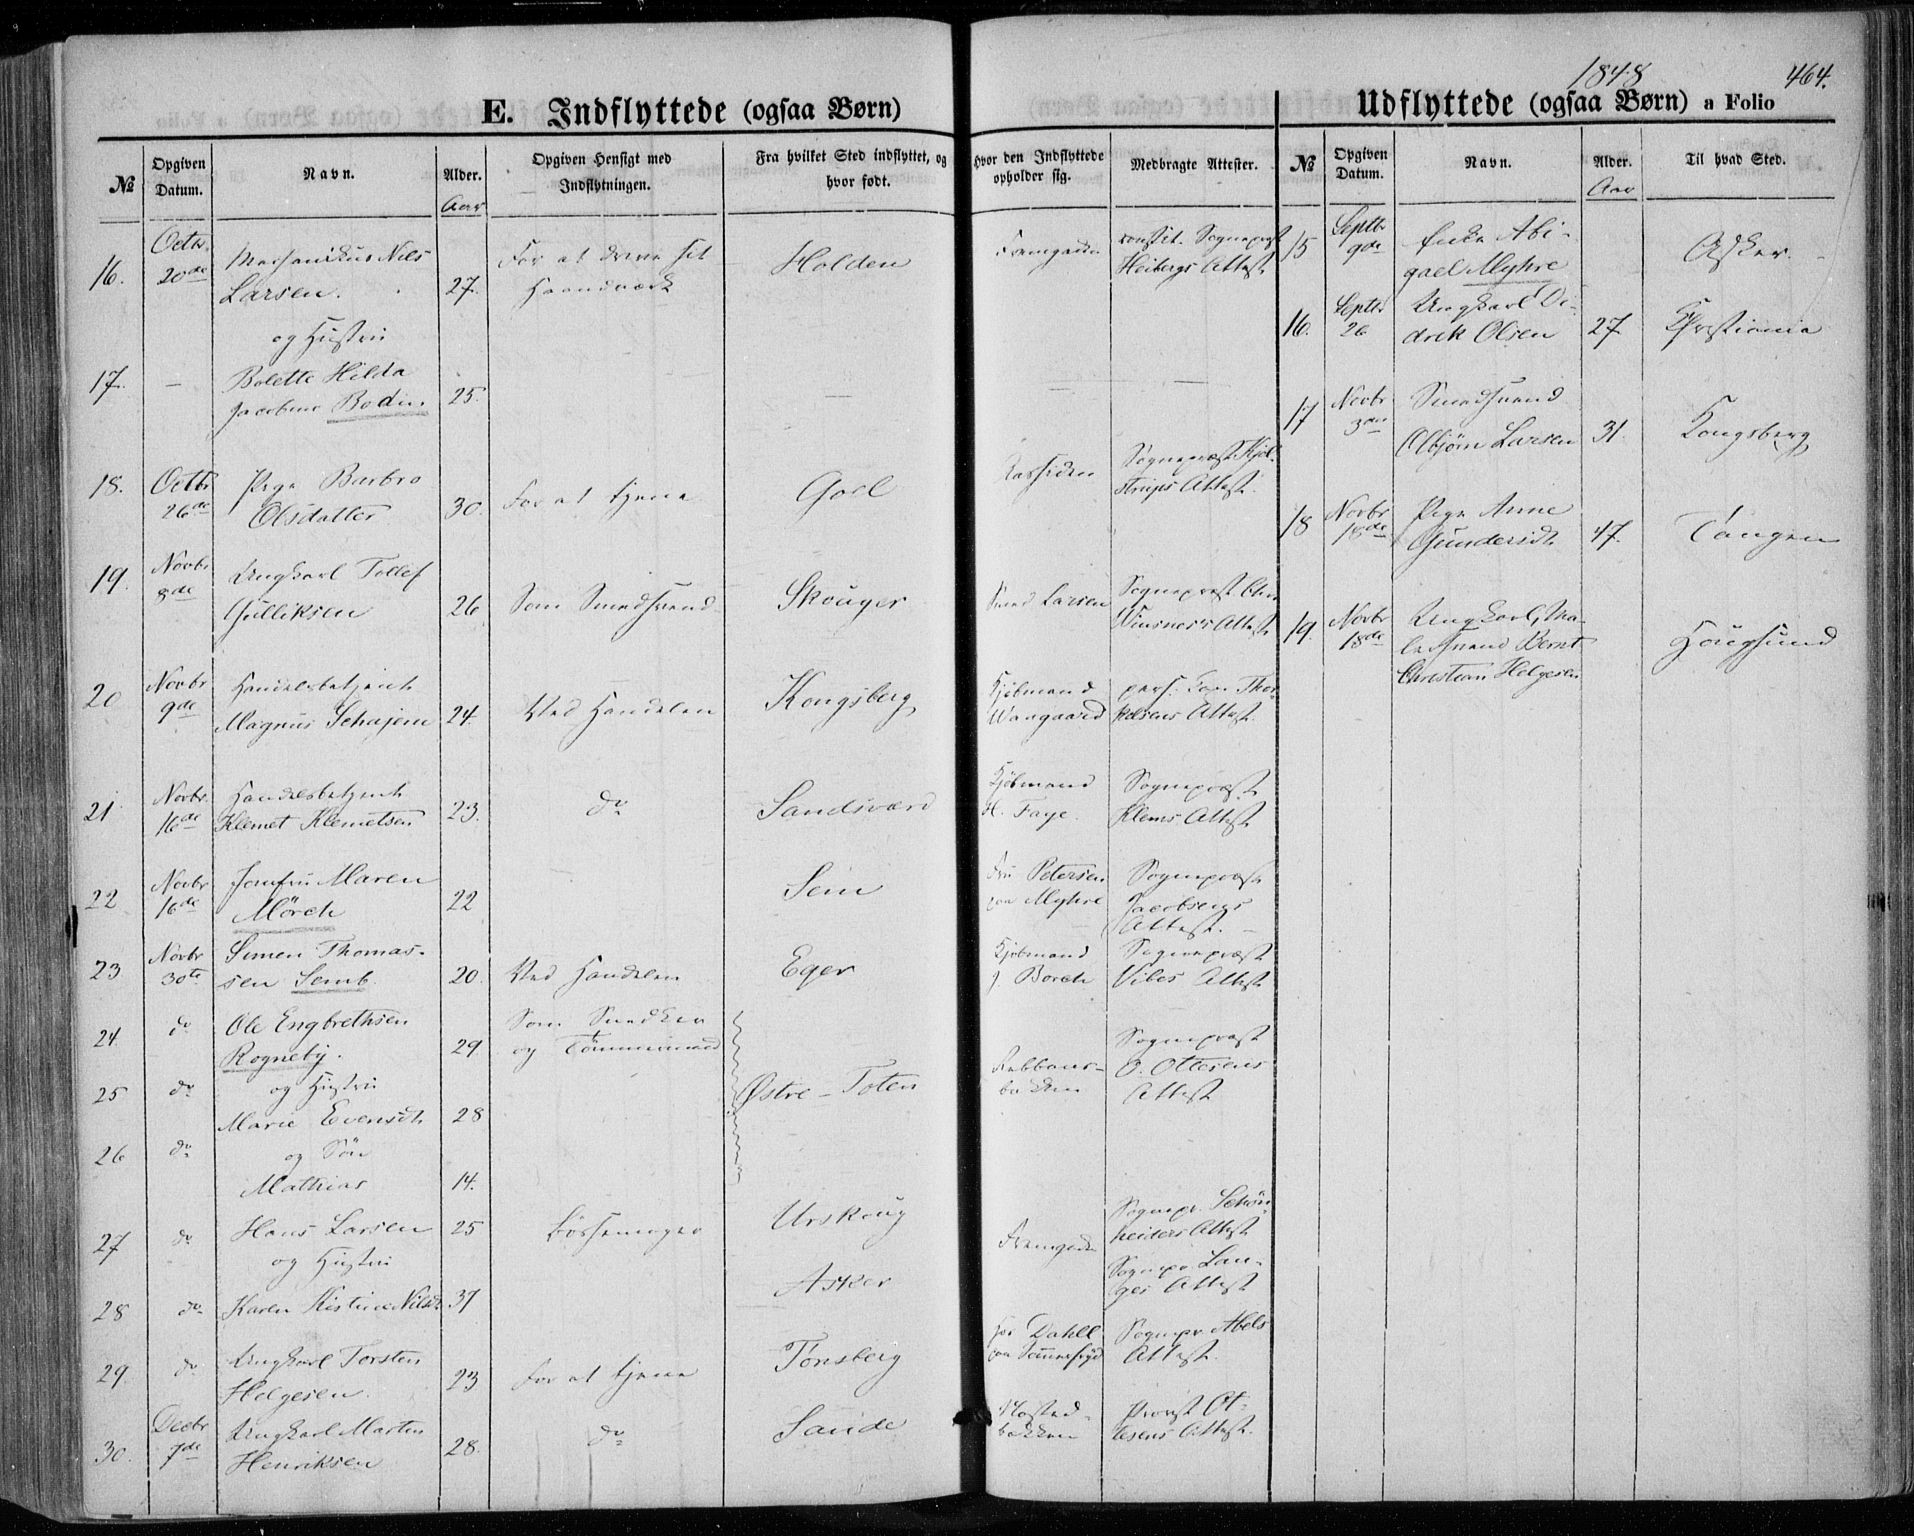 1848
464.
E. Indflyttede (ogsaa Børn)
Udflyttede (ogsaa Børn) a Folio
№ Opgiven Datum. Navn. Alder. Opgiven Hensigt med Indflytningen. Fra hvilket Sted indflyttet, og hvor født. Hvor den Indflyttede opholder sig. Medbragte Attester.
Aar
16. Octbr. 20de Nils Larsen. 27. For at drive sit Haandværk Holden Sognepræst Heibergs Attest
og Hustru
17. — Bolette Hilda Jacobine Bodin 25. — —
18. Octbr 26de Pige Barbro Olsdatter 30. For at tjene Goel Sognepræst Kjelstrups Attest.
19. Novbr 8de Ungkarl Tollef Gulliksen 26 Som Smedsvend Skouger Smed Larsen Sognepræst Winsnes's Attest
20 Novbr 9de Handelsbetjent Magnus Schajem 24. Ved Handelen Kongsberg Kjøbmand Wangaard pers. Cap. Thorkelsens Attest.
21. Novbr. 16de Handelsbetjent Klemet Klemetsen 23. do Sandsværd Kjøbmand H. Faye. Sognepræst Klems Attest
22 Novbr 16de Jomfru Maren Mørch 22 Sem Fru Petersen paa Myhre Sognepræst Jacobsens Attest. —
23. Novbr 30te Simen Thomassen Semb. 20. Ved Handelen Eger Kjøbmand J. Borch Sognepræst Vibes Attest
24. do Ole Engbrethsen Rogneby. 29 Som Snedker og Tømmermand Østre-Toten Sognepræst O. Ottesens Attest
25 do og Hustru Marie Evensdt. 28
26 do og Søn Mathias 14.
27 do Hans Larsen 25 Børsemager Urskoug Sognepr. Schønheiders Attest
og Hustru
28 do Karen Kistine Nilsdt. 37 Asker Sognepr. Langes Attest
29. do Ungkarl Torsten Helgesen. 23 For at tjene Tønsberg Hos Dahll paa Sognepr. Abels Attest.
30. Decbr 7de Ungkarl Martin Henriksen 28. do Sande Provst Ottesens Attest.
№ Opgiven Datum. Navn. Alder. Til hvad Sted.
Aar
15 Septbr 9de Enke Abigael Myhre Asker. —
16. Septbr 26 Ungkarl Didrik Olsen 27. Christiania
17 Novbr 3die Smedsvend Olbjørn Larsen 31. Kongsberg
18 Novbr 18de Pige Anne Gundersdt. 47. Tangen
19. Novbr 18de Ungkarl, Malersvend Bernt Christian Helgesen Hougsund